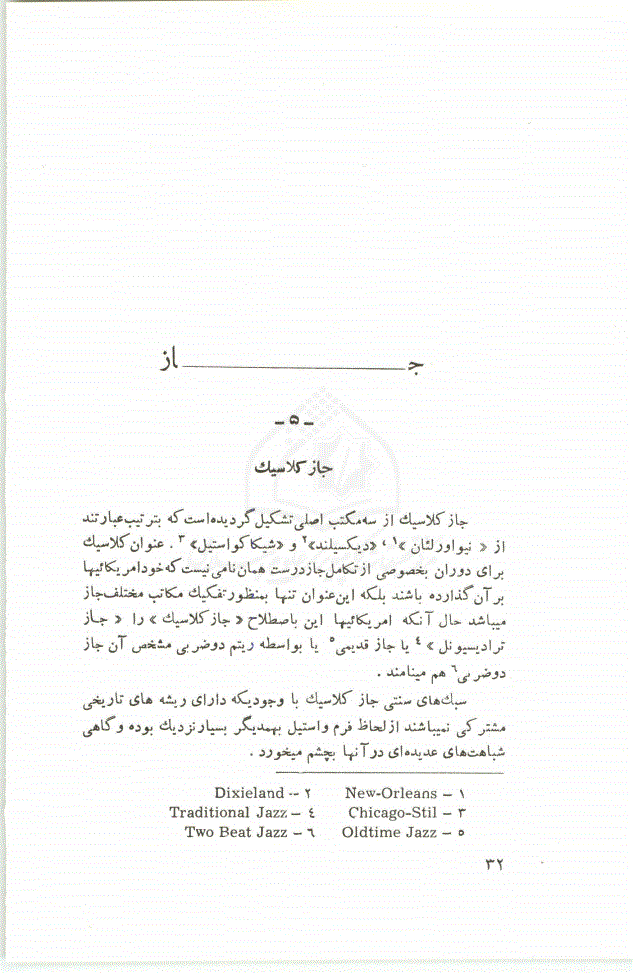 جـــــــــــــــاز
ـ ۵ ـ
جاز کلاسیك
جاز کلاسیك از سه مکتب اصلی تشکیل گردیده است که بترتیب عبارتند
از « نیواورلئان »۱ ، «دیکسیلند»۲ و «شیکاگواستیل» ۳ . عنوان کلاسیك
برای دوران بخصوصی از تکامل جاز درست همان نامی نیست که خود امریکائیها
بر آن گذارده باشند بلکه این عنوان تنها بمنظور تفکیك مکاتب مختلف جاز
میباشد حال آنکه امریکائیها این باصطلاح « جاز کلاسیك » را « جاز
ترادیسیونل » ٤ یا جاز قدیمی۵ یا بواسطه ریتم دوضربی مشخص آن جاز
دوضربی٦ هم مینامند .
سبك‌های سنتی جاز کلاسیك با وجودیکه دارای ریشه های تاریخی
مشترکی نمیباشند از لحاظ فرم واستیل بهمدیگر بسیار نزدیك بوده و گاهی
شباهت‌های عدیده‌ای در آنها بچشم میخورد .
۱ – New-Orleans ۲ – Dixieland
۳ – Chicago-Stil ٤ – Traditional Jazz
۵ – Oldtime Jazz ٦ – Two Beat Jazz
۳۲